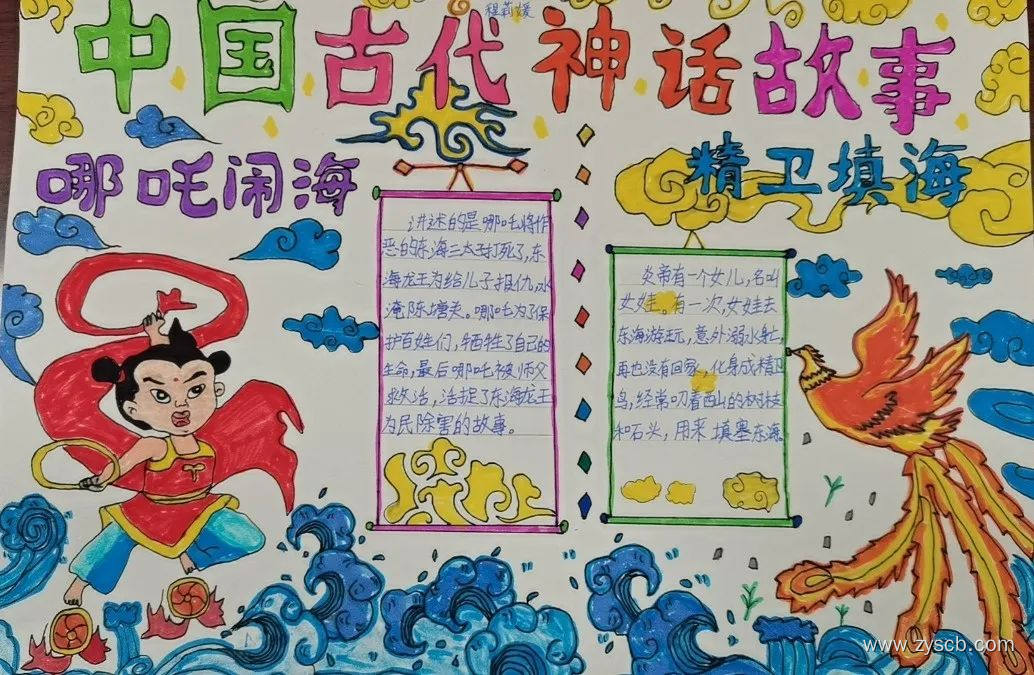 程莉媛
中国古代神话故事
哪吒闹海
精卫填海
讲述的是哪吒将作
恶的东海三太子打死了,东
海龙王为给儿子报仇,水
淹陈塘关。哪吒为了保
护百姓们,牺牲了自己的
生命,最后哪吒被师父
救活,活捉了东海龙王
为民除害的故事。
炎帝有一个女儿,名叫
女娃。有一次,女娃去
东海游玩,意外溺水身亡,
再也没有回家,化身成精卫
鸟,经常叼着西山的树枝
和石头,用来填塞东海。
www.zyscb.com